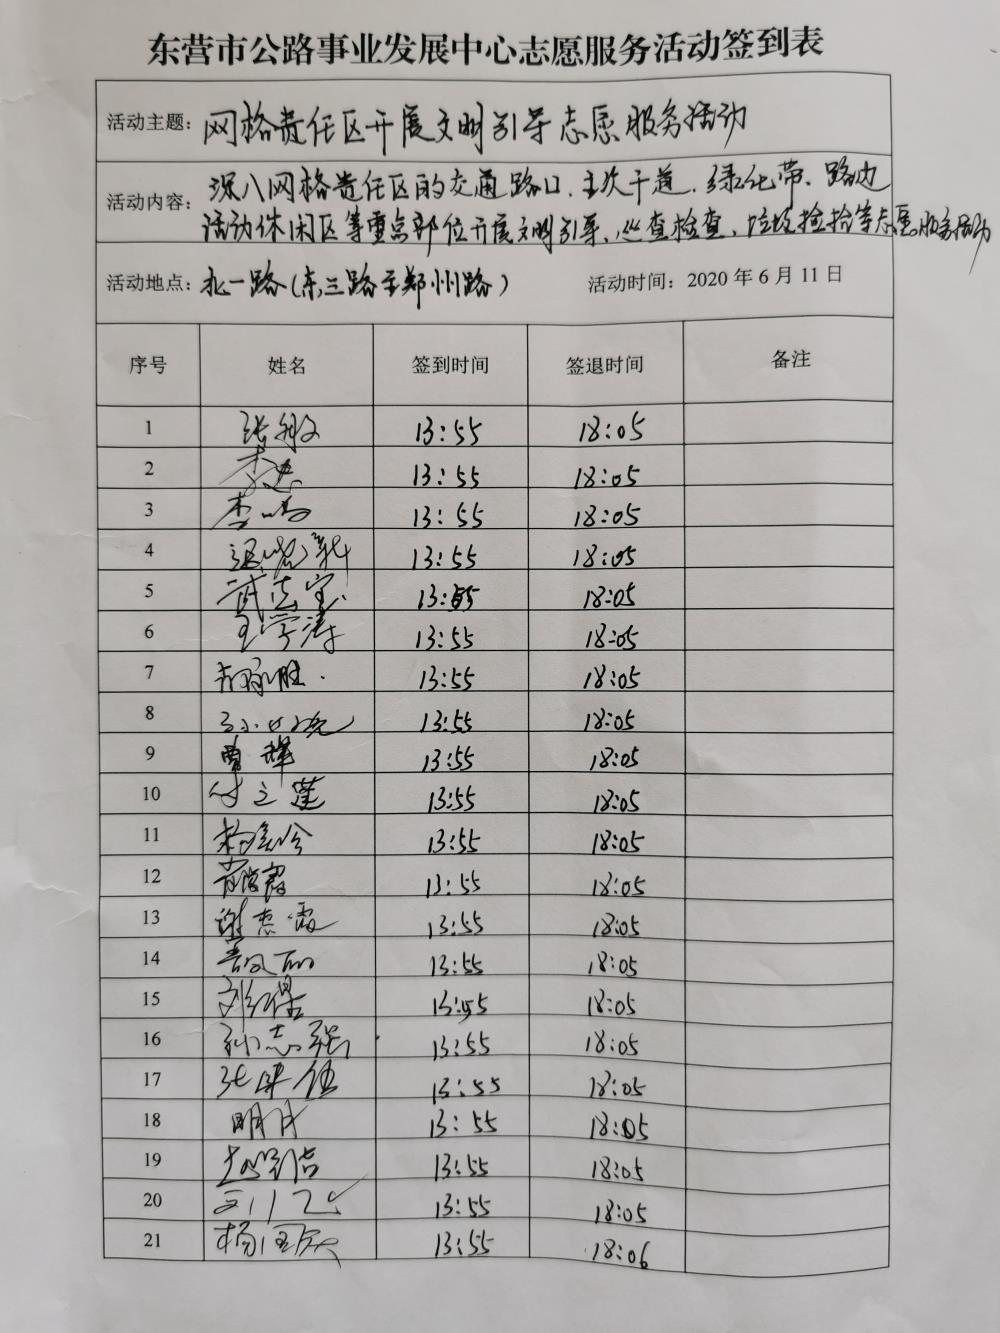 东营市公路事业发展中心志愿服务活动签到表
活动主题：网格责任区开展文明引导志愿服务活动
活动内容：深入网格责任区的交通路口、主次干道、绿化带、路边
活动休闲区等重点部位开展文明引导、巡查检查、垃圾捡拾等志愿服务活动
活动地点：北一路（东三路至郑州路） 活动时间：2020 年 6 月 11 日
序号 姓名 签到时间 签退时间 备注
1 张敏 13:55 18:05
2 13:55 18:05
3 13:55 18:05
4 13:55 18:05
5 武志宝 13:55 18:05
6 王学涛 13:55 18:05
7 13:55 18:05
8 13:55 18:05
9 曹辉 13:55 18:05
10 付立莲 13:55 18:05
11 13:55 18:05
12 13:55 18:05
13 谢志霞 13:55 18:05
14 13:55 18:05
15 13:55 18:05
16 孙志强 13:55 18:05
17 13:55 18:05
18 明月 13:55 18:05
19 13:55 18:05
20 13:55 18:05
21 13:55 18:06